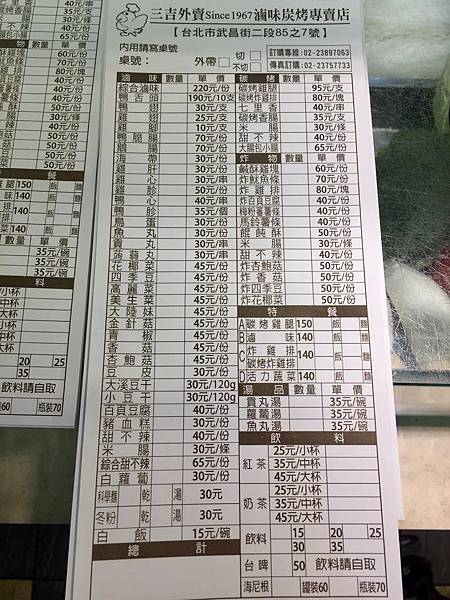 三吉外賣Since1967滷味炭烤專賣店
【台北市武昌街二段85之7號】
內用請寫桌號
桌號： 外帶 切□ 不切□
訂購專線:02-23897063
傳真訂購:02-23757733
滷 味 數量 單 價
綜合滷味 220元/份
鴨舌頭 190元/10支
鴨翅 30元/支
雞翅 25元/支
雞腳 10元/支
鴨腸 50元/份
鵝腸 70元/份
海帶 30元/份
雞肝 30元/份
雞心 30元/串
雞胗 50元/份
鴨心 40元/串
鴨胗 35元/個
鳥蛋 30元/串
魚丸 30元/串
貢丸 30元/串
蒟蒻丸 30元/串
花椰菜 45元/份
四季豆 45元/份
高麗菜 45元/份
美生菜 45元/份
大陸妹 45元/份
金針菇 45元/份
青椒 45元/份
香菇 45元/份
杏鮑菇 45元/份
豆皮 30元/份
大溪豆干 30元/120g
小豆干 30元/120g
百頁豆腐 40元/份
豬血糕 30元/份
甜不辣 40元/份
米腸 30元/條
綜合甜不辣 65元/份
白蘿蔔 30元/份
科學麵 乾 湯 30元
冬粉 乾 湯 30元
白飯 15元/碗
總 計
碳 烤 數量 單 價
碳烤雞腿 95元/支
碳烤雞排 80元/塊
七里香 40元/串
碳烤香腸 35元/支
米腸 30元/條
甜不辣 40元/份
大腸包小腸 65元/份
炸 物 數量 單 價
鹹酥雞塊 50元/份
炸魷魚條 70元/份
炸雞排 80元/塊
炸百頁豆腐 40元/份
梅粉蕃薯條 40元/份
馬鈴薯條 40元/份
餛飩酥 50元/份
米腸 30元/條
甜不辣 40元/份
炸杏鮑菇 50元/份
炸香菇 50元/份
炸四季豆 50元/份
炸花椰菜 50元/份
特 餐
A 碳烤雞腿 150 飯 麵
B 滷味 140 飯 麵
C 炸雞排 碳烤炸雞排 140 飯 麵
D 活力蔬菜 140 飯 麵
湯 品 數量 單 價
貢丸湯 35元/碗
蘿蔔湯 35元/碗
魚丸湯 35元/碗
飲 料
紅茶 25元/小杯
35元/中杯
45元/大杯
奶茶 25元/小杯
35元/中杯
45元/大杯
飲料 15 20 25
30 35
台啤 50 飲料請自取
海尼根 罐裝60 瓶裝70